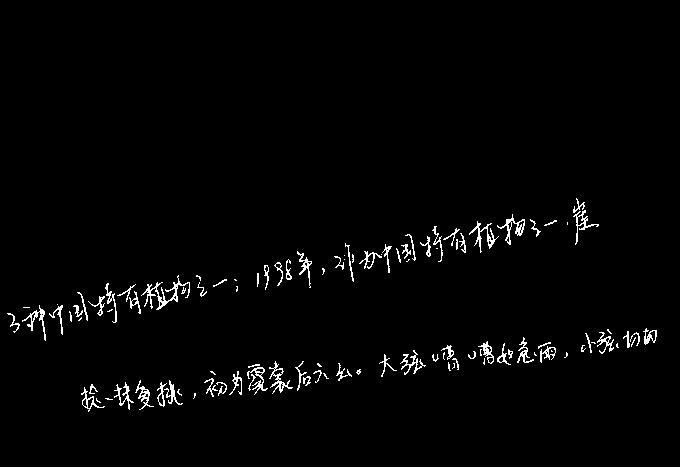 3种中国特有植物之一；1998年，作为中国特有植物之一.崖
捻抹复挑，初为霓裳后六幺。大弦嘈嘈如急雨，小弦切切